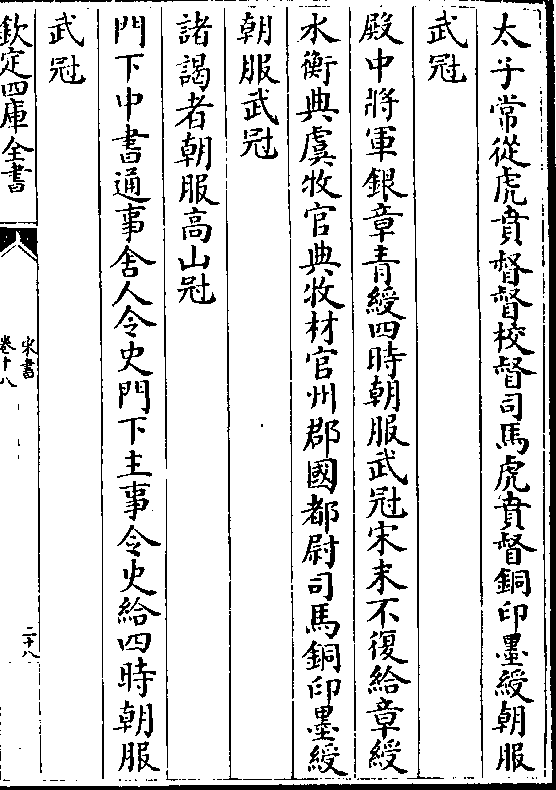 太子常從虎賁督督校督司馬虎賁督銅印墨綬朝服
武冠
殿中將軍銀章青綬四時朝服武冠宋末不復給章綬
水衡典虞牧官典牧材官州郡國都尉司馬銅印墨綬
朝服武冠
諸謁者朝服高山冠
門下中書通事舍人令史門下主事令史給四時朝服
武冠
欽定四庫全書
宋書
卷十八
二十八